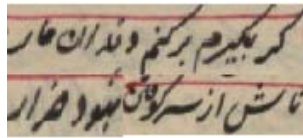 کر بکیرم برکنم دندان مار
تاش از سر کوفتن نبود ضرار